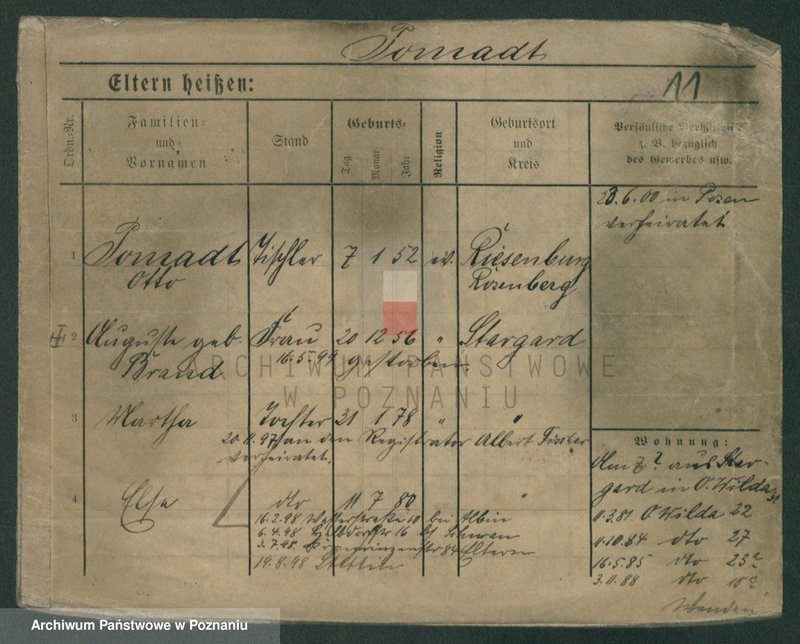 Pomadt
11
Eltern heißen:
Ordn.-Nr.
Familien- und Vornamen
Stand
Geburts-
Tag
Monat
Jahr
Religion
Geburtsort und Kreis
Persönliche
z. B. bezüglich
des Gewerbes usw.
23.6.00 in Posen
verheiratet
1 Pomadt Tischler 7 1 52 ev. Riesenburg
Otto Rosenberg
2 Auguste geb. Frau 20 12 56 " Stargard
Brand. 16.5.99 gestorben.
3 Martha Tochter 31 1 78 " "
20.11.97 an den Registrator Albert Fischer
verheiratet.
4 Else dto 11 7 80 "
16.2.98 10 bei Albin
6.4.98 16 bei
3.7.98 84 Eltern
19.8.98 Stettin
Wohnung:
aus Star-
gard in O. Wilda
11.3.81. O. Wilda 22
1.10.84 dto 27
16.5.85 dto 23a
3.11.88 dto 10c
Wenden
ARCHIWUM PAŃSTWOWE
W POZNANIU
Archiwum Państwowe w Poznaniu